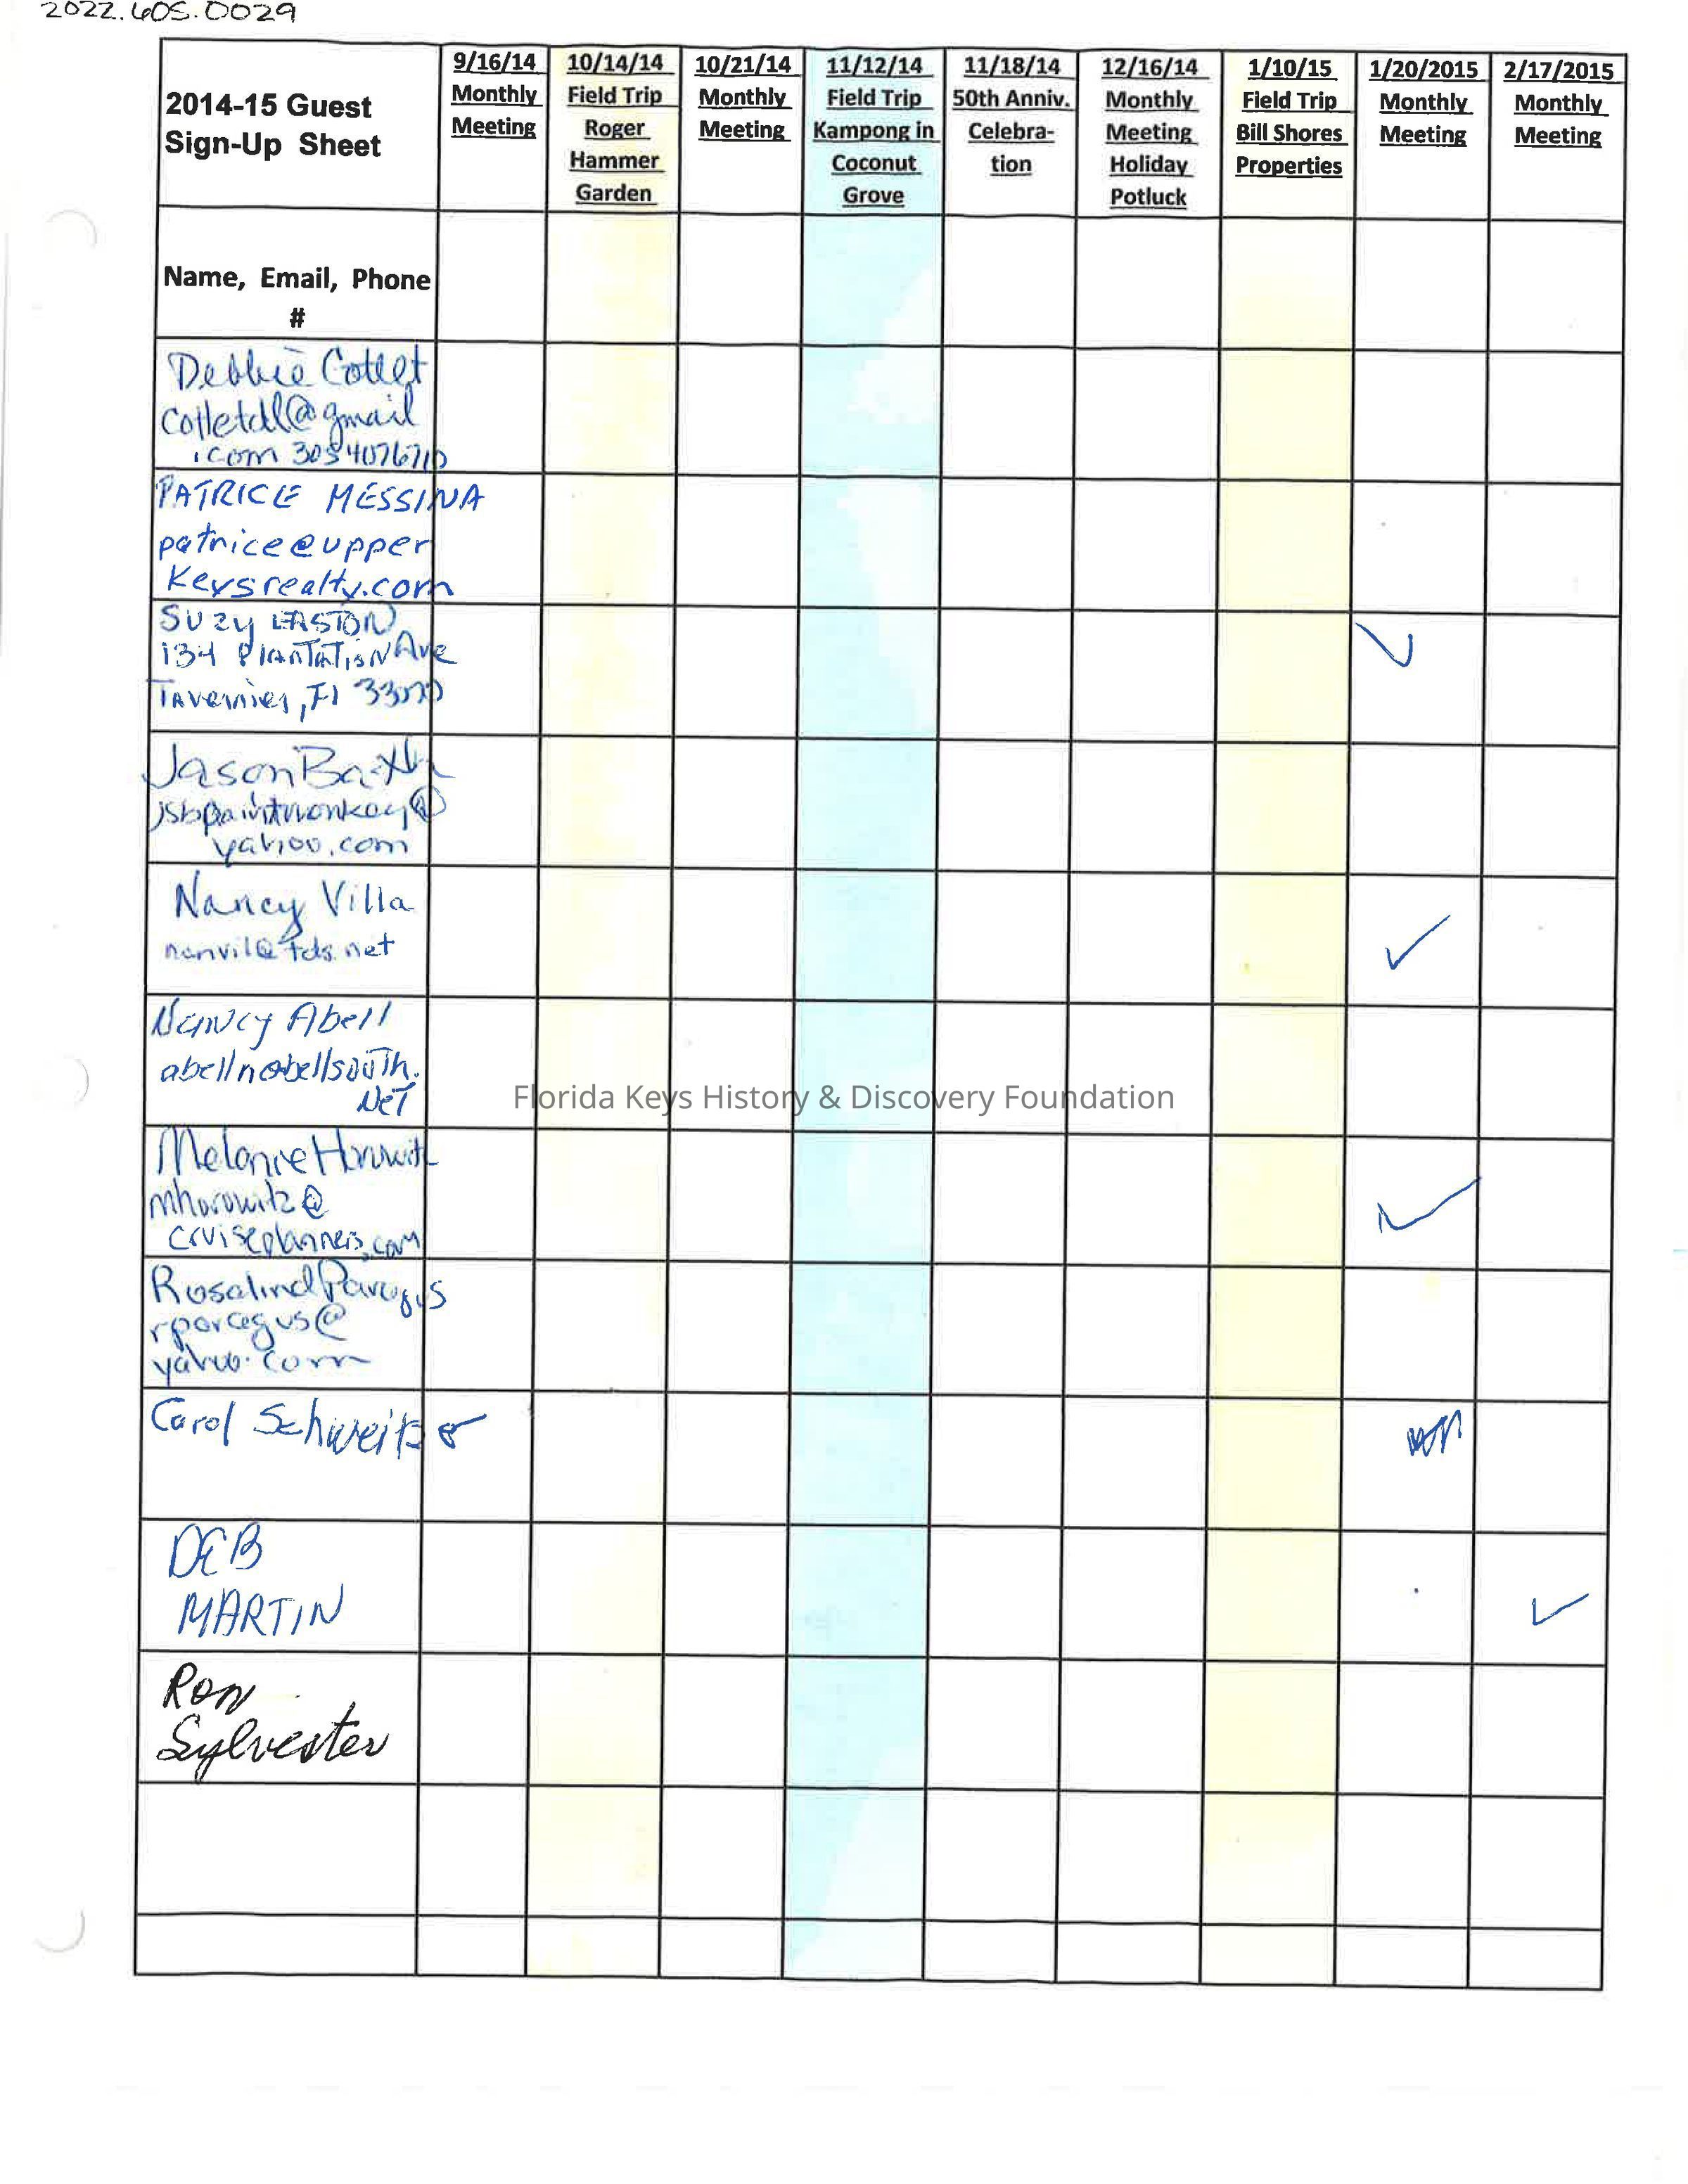 2022.605.0029
2014-15 Guest
Sign-Up Sheet
9/16/14
Monthly
Meeting
10/14/14
Field Trip
Roger
Hammer
Garden
10/21/14
Monthly
Meeting
11/12/14
Field Trip
Kampong in
Coconut
Grove
11/18/14
50th Anniv.
Celebra-
tion
12/16/14
Monthly
Meeting
Holiday
Potluck
1/10/15
Field Trip
Bill Shores
Properties
1/20/2015
Monthly
Meeting
2/17/2015
Monthly
Meeting
Name, Email, Phone
#
Debbie Cotlet
@gmail
.com
PATRICE MESSINA
patrice@upper
Keysrealty.com
SUZY EASTON
134 PLANTATION Ave
TAvernier, Fl
Jason
yahoo.com
Nancy Villa
nanvil@tds.net
Nancy Abell
abellnabellsouth.
NeT
Melanie
mhorowitz@
cruiseplanners.com
Rosalind
yahoo.com
Carol Schweitzer
DEB
MARTIN
Ron
Sylvester
Florida Keys History & Discovery Foundation